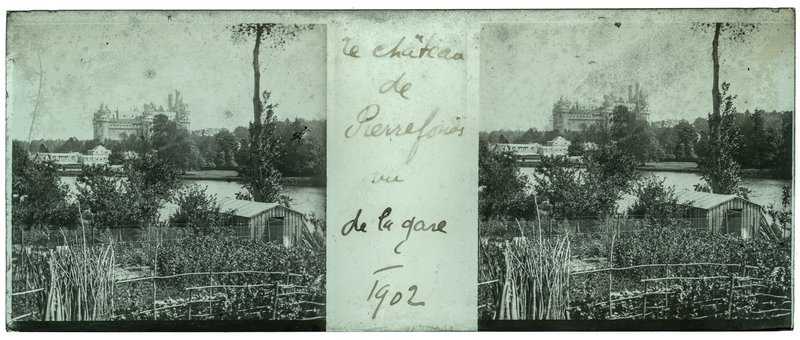 le château
de
Pierrefonds
vu
de la gare
1902